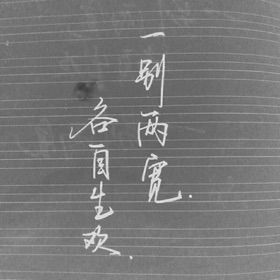 一别两宽.
各自生欢.